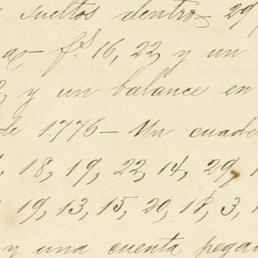 sueltos dentro- 29,
a,- fs. 16, 22, y un
, y un balance en
de 1776- Un cuade
, 18, 19, 22, 14, 29,
19, 13, 15, 20, 18, 3, 1
y una cuenta pega